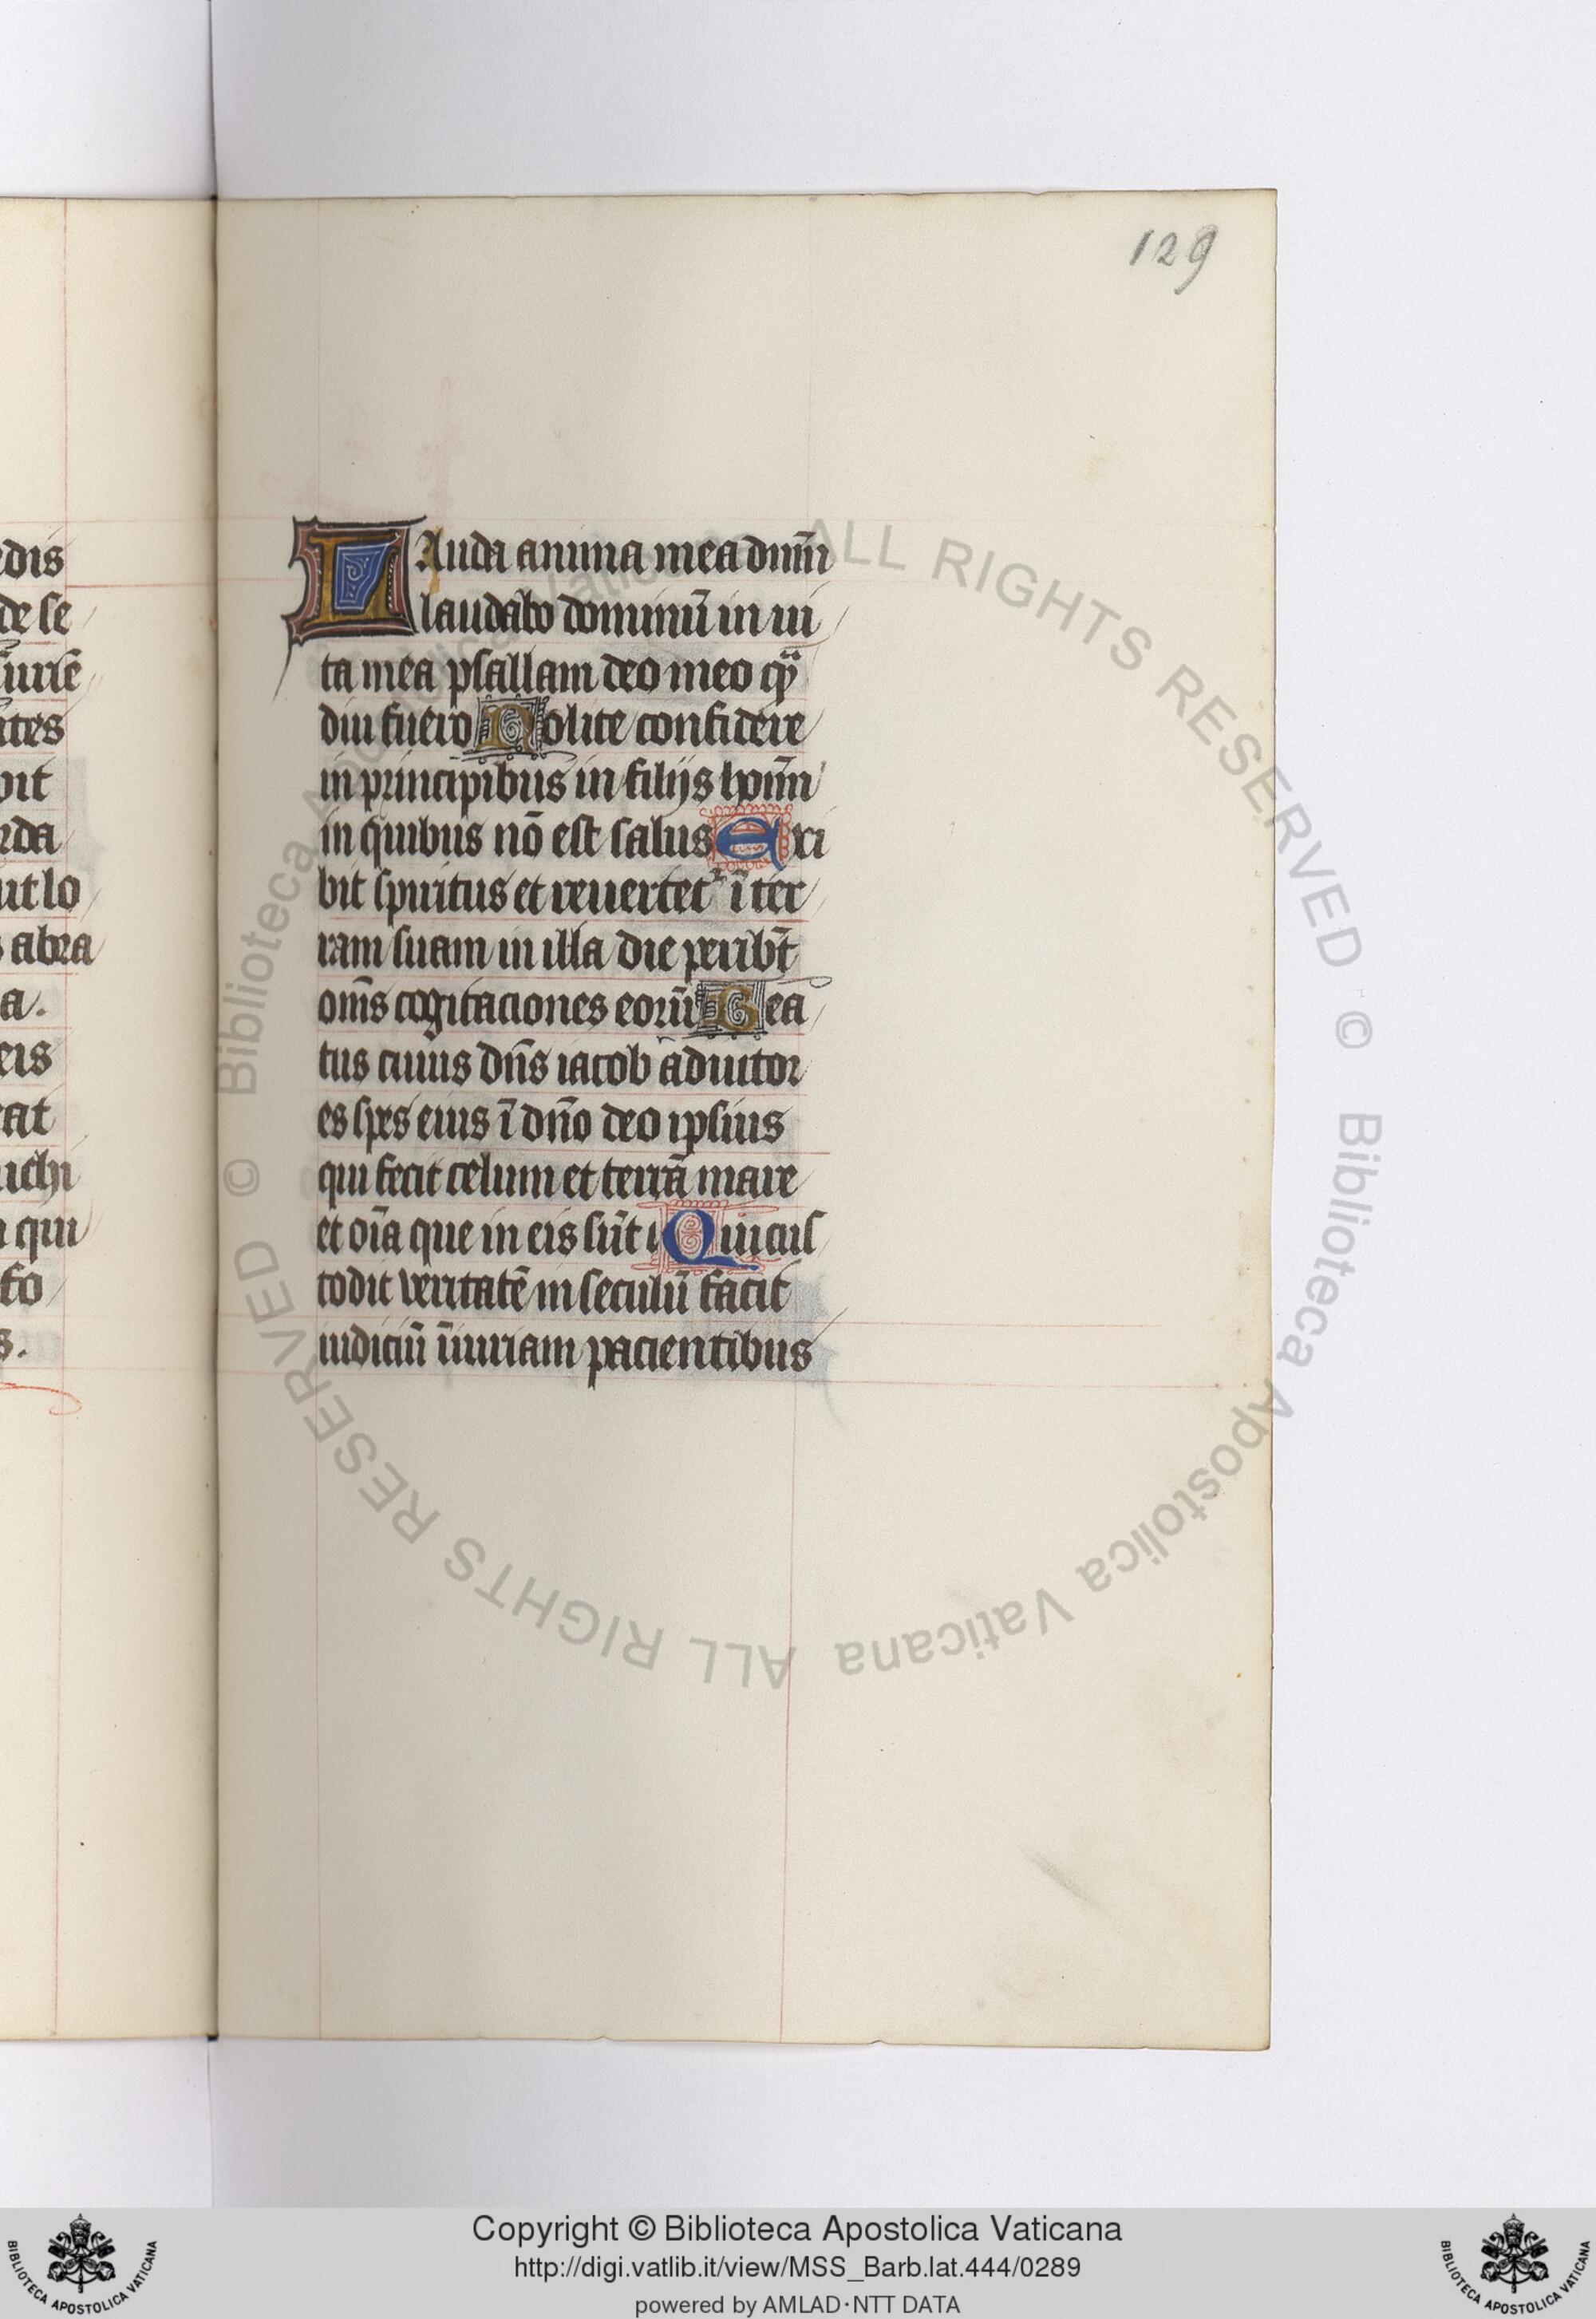 129
edis
de se
ites
oit
rda
ut lo
s abra
a.
eis
eat
ichi
qui
fo
s.
LAuda anima mea dnm̄
laudabo dominū in ui
ta mea psallam deo meo
diu fuero Nolite confidere
in principibus in filijs hoīm
in quibus nō est salus Exi
bit spiritus et reuertet ī ter
ram suam in illa die peribt̄
om̄s cogitaciones eorū Bea
tus cuius dn̄s iacob adiutor
es spes eius ī dn̄o deo ipsius
qui fecit celum et terrā mare
et oīa que in eis sūt Qui cus
todit veritatē in seculū facit
iudiciū īiuriam pacientibus
© Biblioteca Apostolica Vaticana ALL RIGHTS RESERVED
© Biblioteca Apostolica Vaticana ALL RIGHTS RESERVED
BIBLIOTECA APOSTOLICA VATICANA
Copyright © Biblioteca Apostolica Vaticana
http://digi.vatlib.it/view/MSS_Barb.lat.444/0289
powered by AMLAD·NTT DATA
BIBLIOTECA APOSTOLICA VATICANA